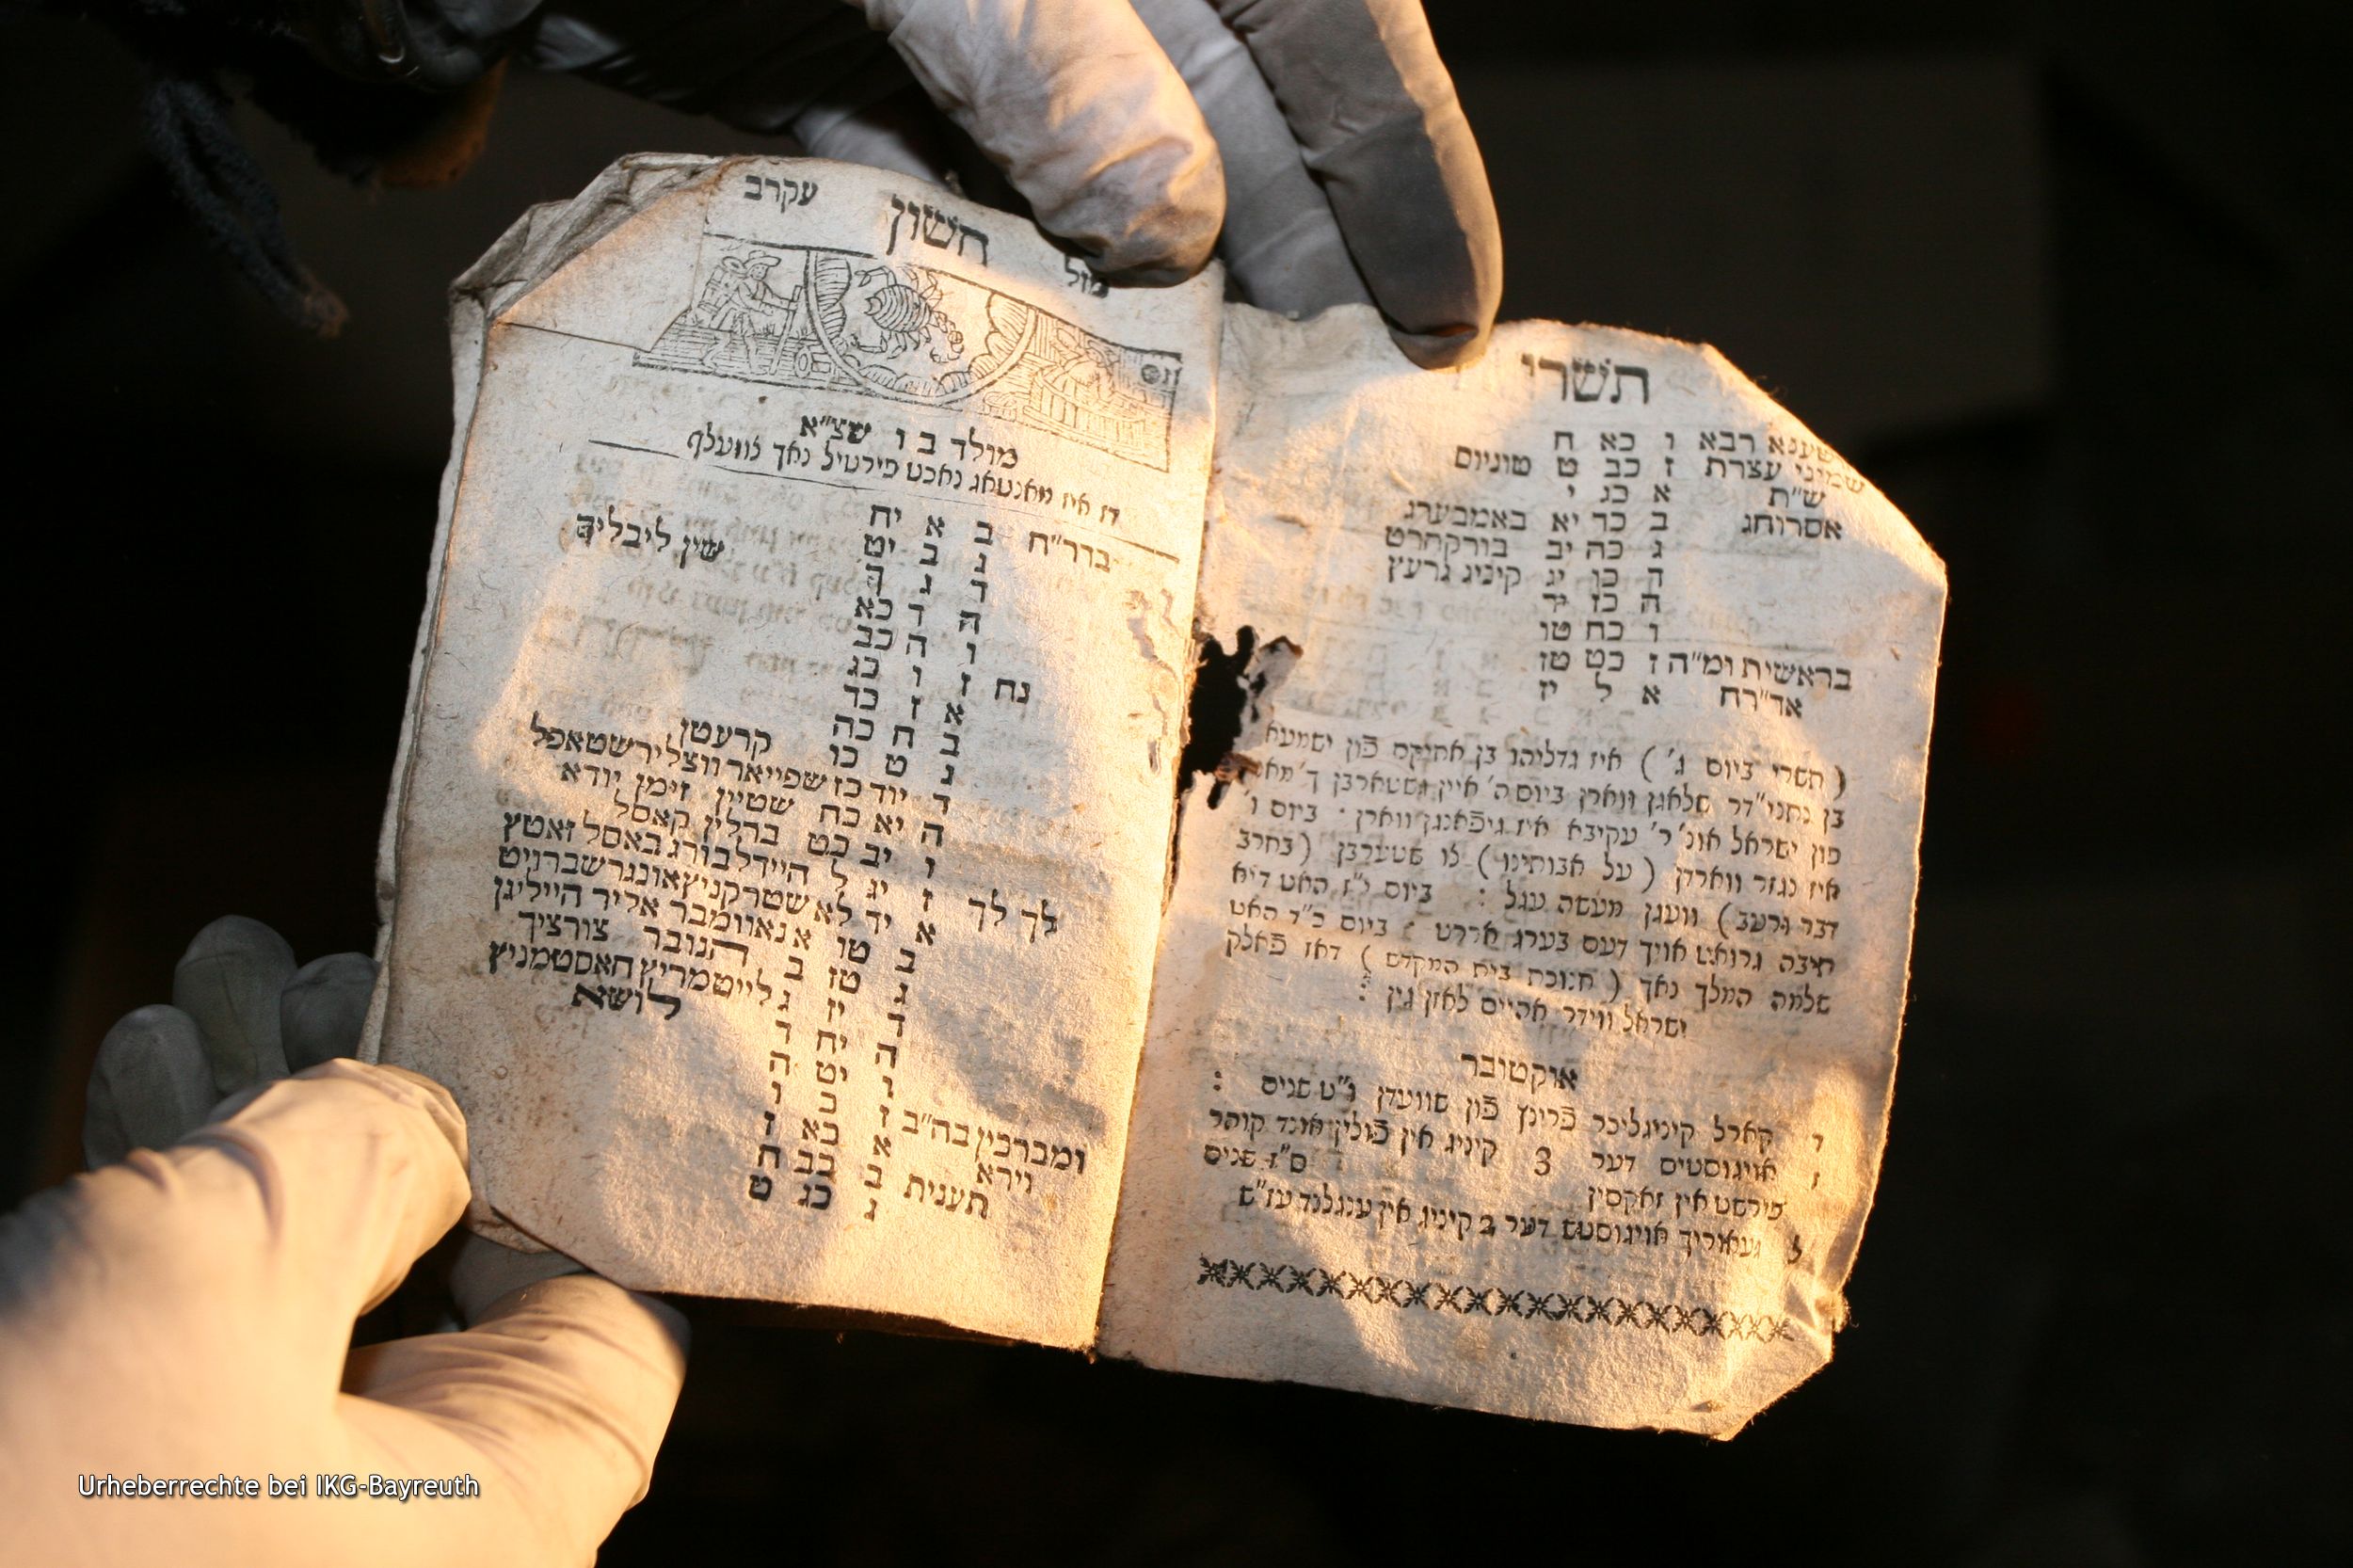 תשרי
ו כא ח
שמיני עצרת ז כב ט טוניום
ש״ת א כג י
אסרוחג ב כד יא באמבערג
ג כה יב בורקהרט
ה כו יג קיניג גרעץ
ה כז יד
ו כח טו
בראשית ומ״ה ז כט טז
אד״רח א ל יז
( תשרי ביום ג׳ ) איז גדליהו בן אחיקם פון ישמעא
בן נתני״ דר שלאגן ווארן ביום ה׳ איין גשטארבן
פון ישראל אונ׳ ר׳ עקיבא איז גיפאנגן ווארן · ביום ו׳
איז נגזר ווארדן ( על אבותינו ) לו שטערבן ( בחרב
דבר ) וועגן מעשה עגל : ביום י״ז האט דיא
תיבה גרואט אויך דעם בערג אררט : ביום כ״ד האט
שלמה המלך נאך ( חנוכת בית המקדש ) דאז פאלק
ישראל ווידר אהיים לאזן גין :
אוקטובר
ד קארל קיניגליכר פרינץ פון שוועדן י״ט שנים :
ז אויגוסטים דער 3 קיניג אין פולין אונד קוהר
פירסט אין זאקסין ס״ז שנים
ל געאוריך אויגוסטס דער ב קיניג אין ענגלנד עז״ש
עקרב חשון מזל
מולד ב ו שצ״א
דז איז מאנטאג נאכט פירטיל נאך צוועלף
בדר״ח ב א יח
ג ב יט שין ליבליך
ד ג כ
ה ד כא
ו ה כב
נח ז ו כג
א ז כד
ב ח כה קרעטן
ג ט כו
ד יוד כז שפייאר ווצלירשטאפל
ה יא כח שטיין זימן יודא
ו יב כט ברלין קאסל
לך לך ז יג ל היידלבורג באסל זאטץ
א יד לא שטרקניץ אונגרשברניט
ב טו א נאוומבר אליר הייליגן
ג טז ב הנובר צורציך
ד יז ג לייטמריץ חאסטמניץ
ה יח ד לושא
ו יט ה
ז כ ו
ומברכין בה״ב
וירא א כא ז
תענית ב כב ח
ג כג ט
Urheberrechte bei IKG-Bayreuth